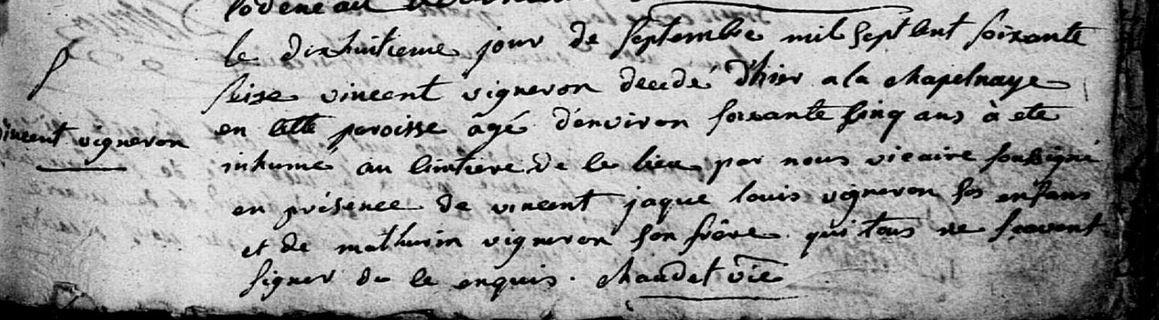 le dixhuitieme jour de septembre mil sept cent soixante
seize vincent vigneron decedé d'hier a la chapelnaye
en cette paroisse âgé d'environ soixante sinq ans à ete
vincent vigneron
inhumé au cimtiere de ce lieu par nous vicaire soussigné
en présence de vincent jaque louis vigneron ses enfans
et de mathurin vigneron son frère qui tous ne scavent
signer de ce enquis. chaudet vic